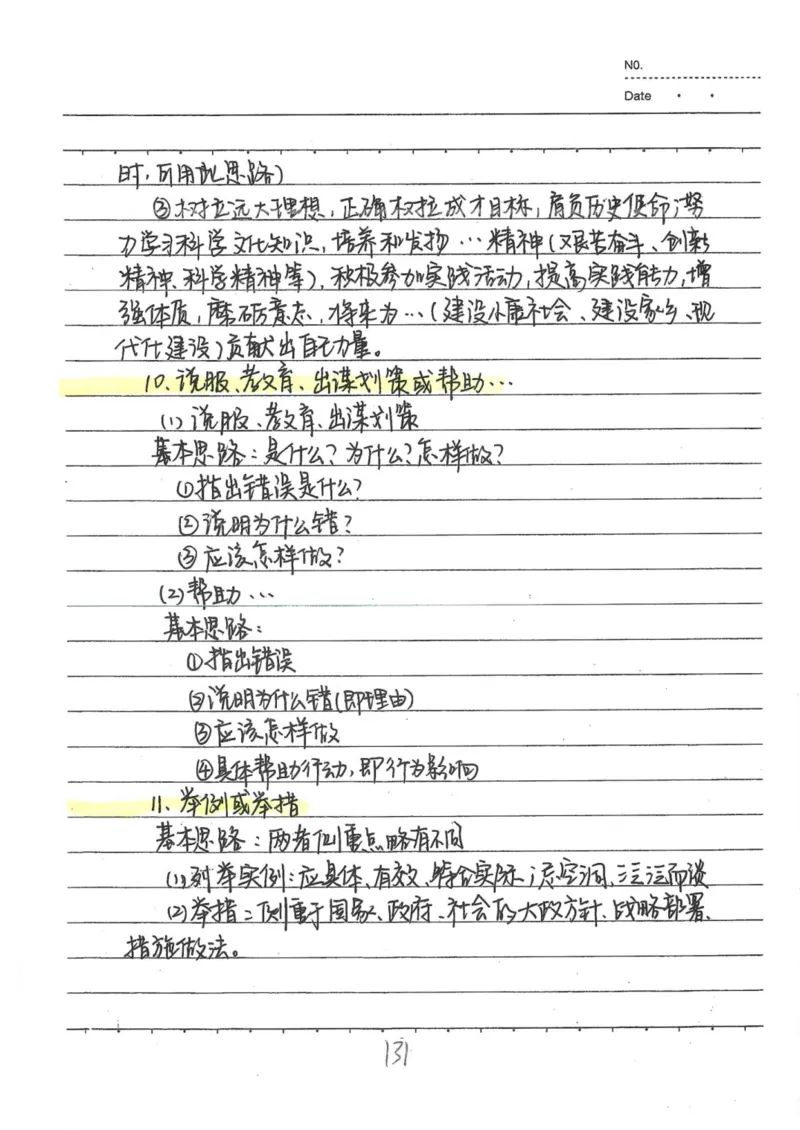 NO.
Date
时,可用此思路)
③树立远大理想,正确树立成才目标,肩负历史使命;努
力学习科学文化知识,培养和发扬…精神(艰苦奋斗、创新
精神、科学精神等),积极参加实践活动,提高实践能力,增
强体质,磨砺意志,将来为…(建设小康社会、建设家乡、现
代化建设)贡献出自己力量。
10、说服、教育、出谋划策或帮助…
(1)说服、教育、出谋划策
基本思路:是什么?为什么?怎样做?
①指出错误是什么?
②说明为什么错?
③应该怎样做?
(2)帮助…
基本思路:
①指出错误
②说明为什么错(即理由)
③应该怎样做
④具体帮助行动,即行为影响
11、举例或举措
基本思路:两者侧重点略有不同
(1)列举实例:应具体、有效、符合实际,忌空洞、泛泛而谈
(2)举措:侧重于国家、政府、社会的大政方针、战略部署、
措施做法。
131